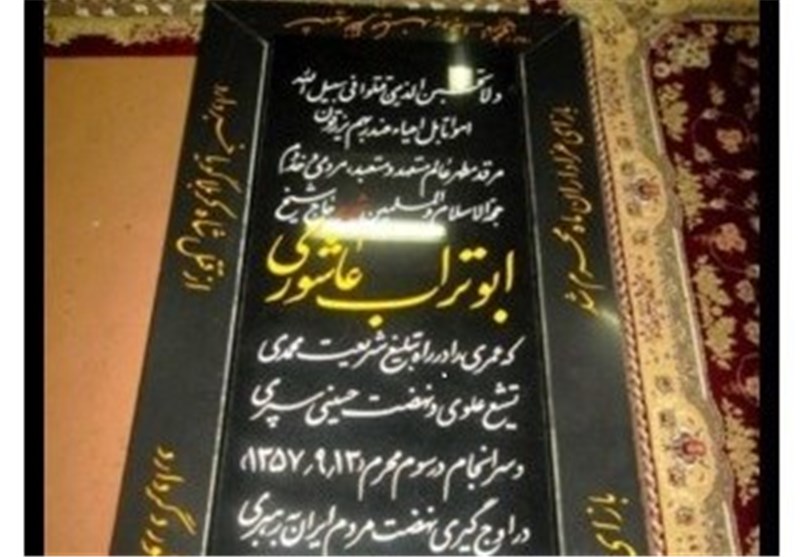 ولا تحسبن الذین قتلوا فی سبیل الله
امواتا بل احیاء عند ربهم یرزقون
مرقد مطهر عالم متعهد و متعبد، مردمی و خدوم
حجة الاسلام والمسلمین حاج شیخ
ابوتراب عاشوری
که عمری را در راه تبلیغ شریعت محمدی
تشیع علوی و نهضت حسینی سپری
و سرانجام در سوم محرم (۱۳٫۹٫۱۳۵۷)
در اوج گیری نهضت مردم ایران به رهبری
باز ای عزاداران ماه محرم شد
باز ای